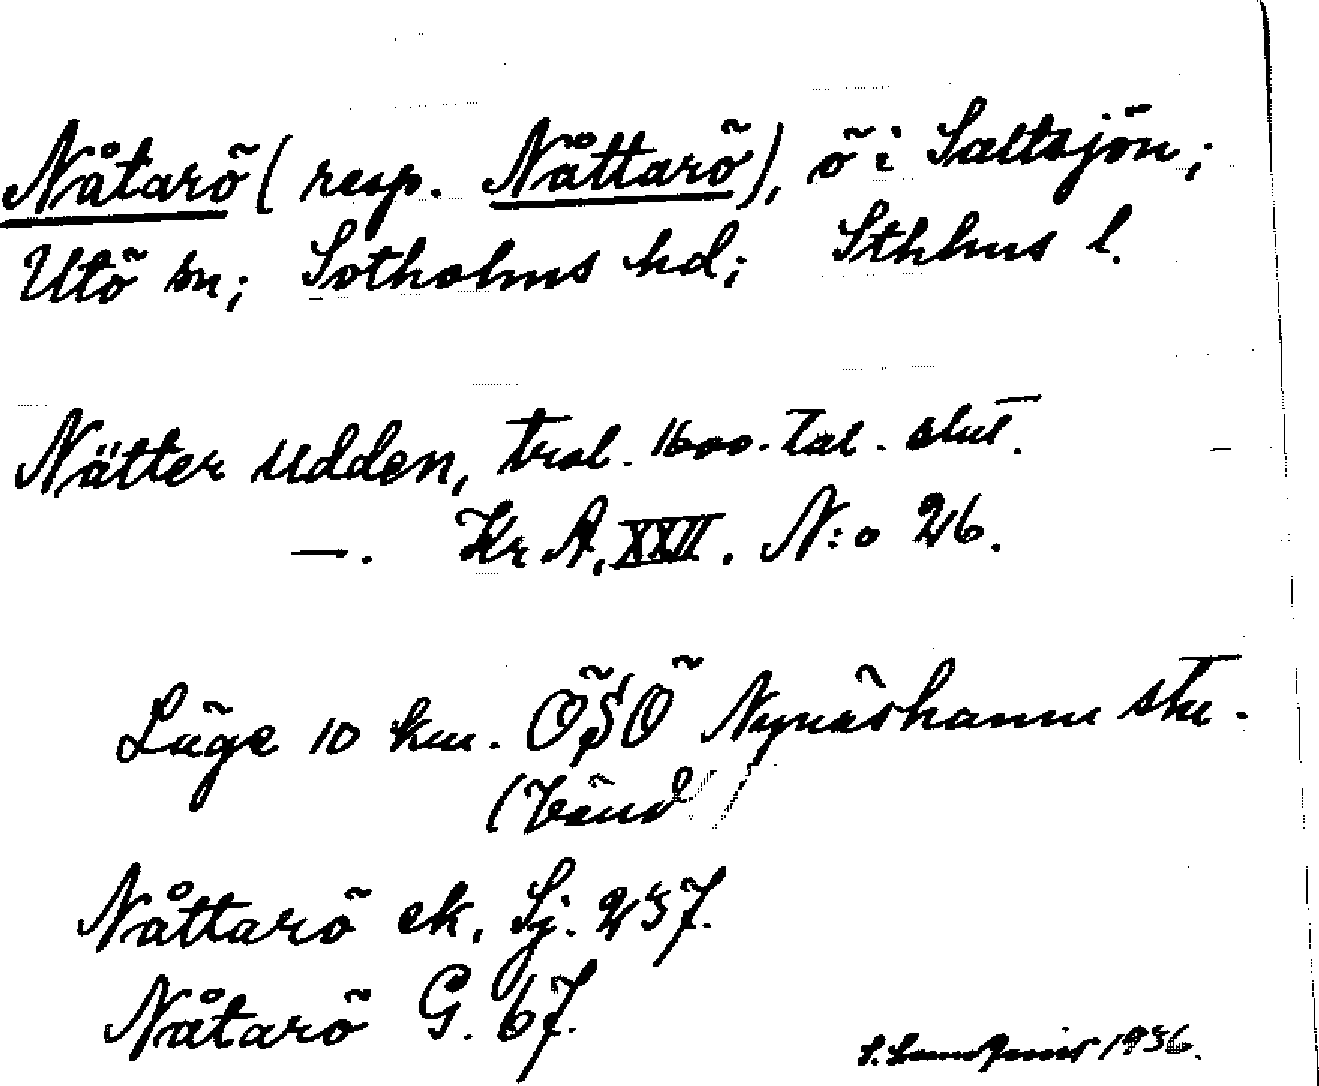 Nåtarö (resp. Nåttarö), ö i Saltsjön;
Utö sn; Sotholms hd; Sthlms l.
Nätter udden, trol. 1600-tal. slut.
—. Kr. A. XXII. N:o 26.
Läge 10 km. ÖSÖ Nynäshamn stn.
(Vänd)
Nåttarö ek. Sj. 257.
Nåtarö G. 67.
1936.